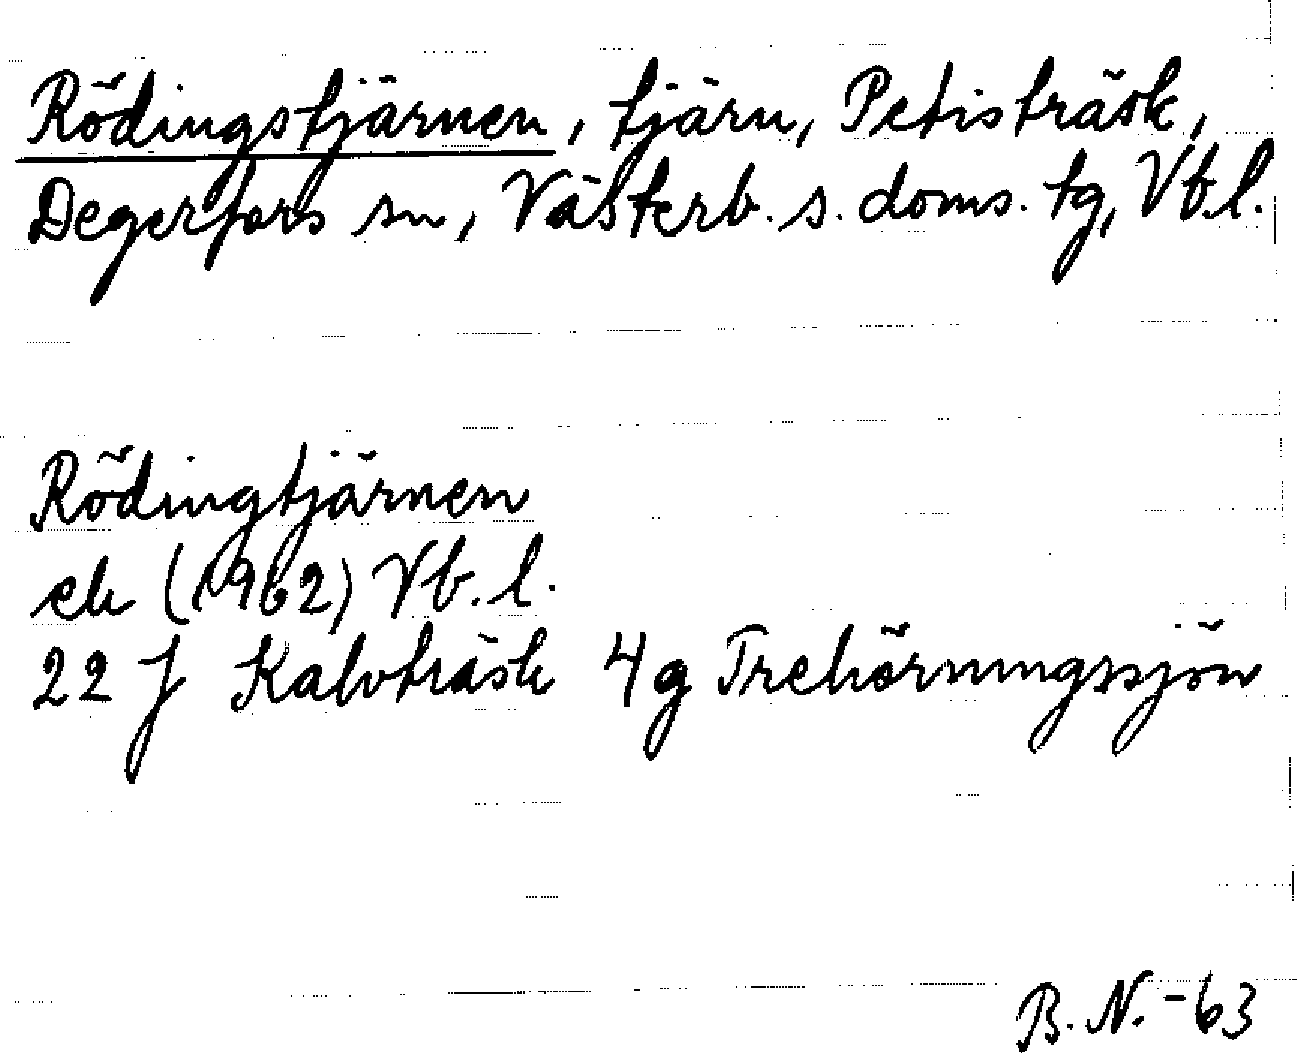 Rödingstjärnen, tjärn, Petisträsk,
Degerfors sn, Västerb. s. doms. tg, Vb.l.
Rödingtjärnen
ek (1962) Vb. l.
22 J Kalvträsk 4g Trehörningssjön
B. N. -63